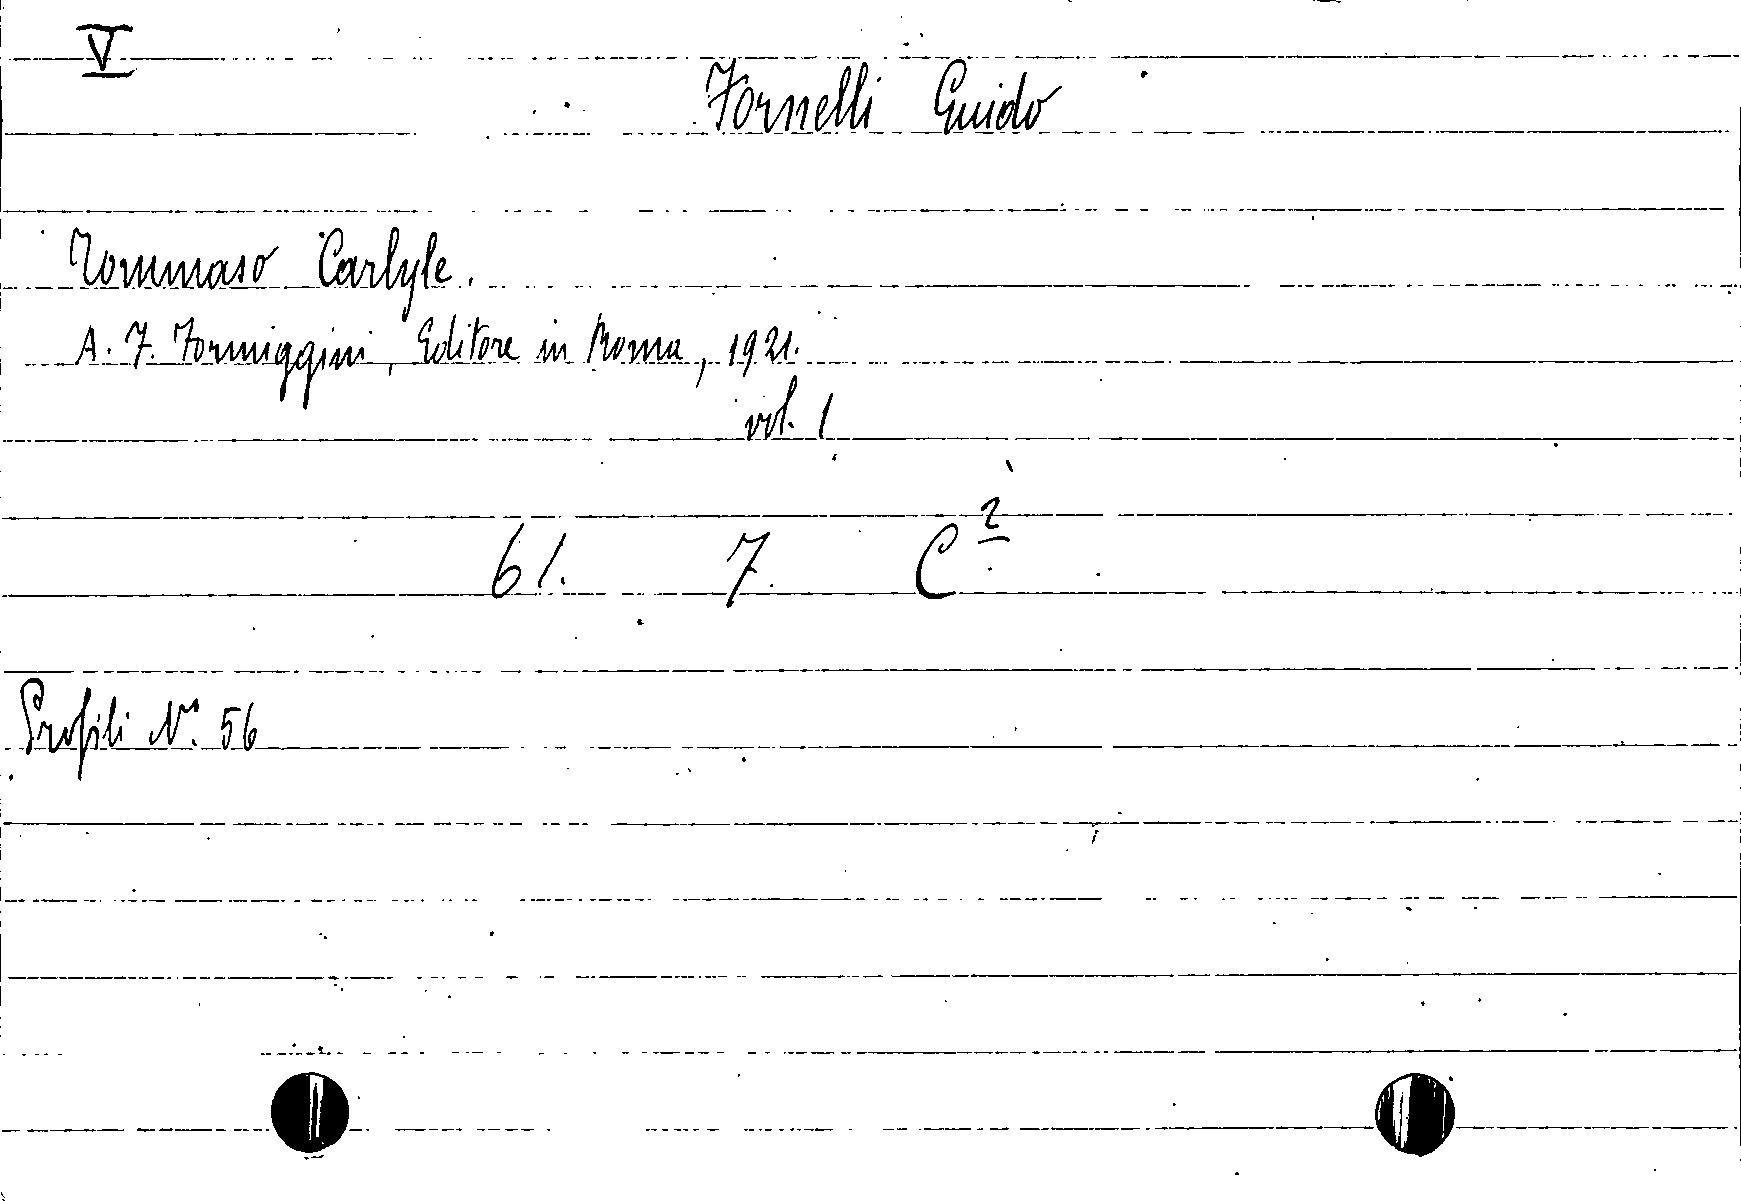 V
Fornelli Guido
Tommaso Carlyle.
A. F. Formiggini, Editore in Roma, 1921.
vol. 1
61. 7. C²
Profili N.° 56